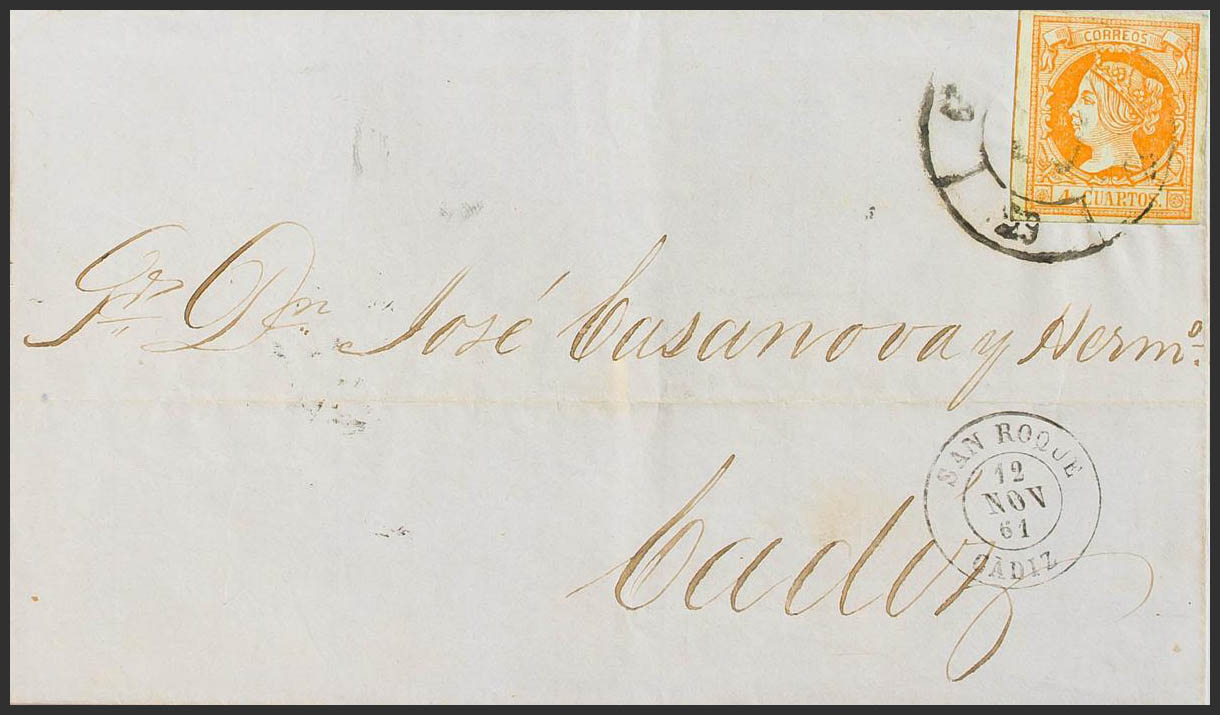 CORREOS
4 CUARTOS.
29
Sr. Dn. José Casanova y Hermo.
SAN ROQUE
12
NOV
61
CÁDIZ
Cadiz